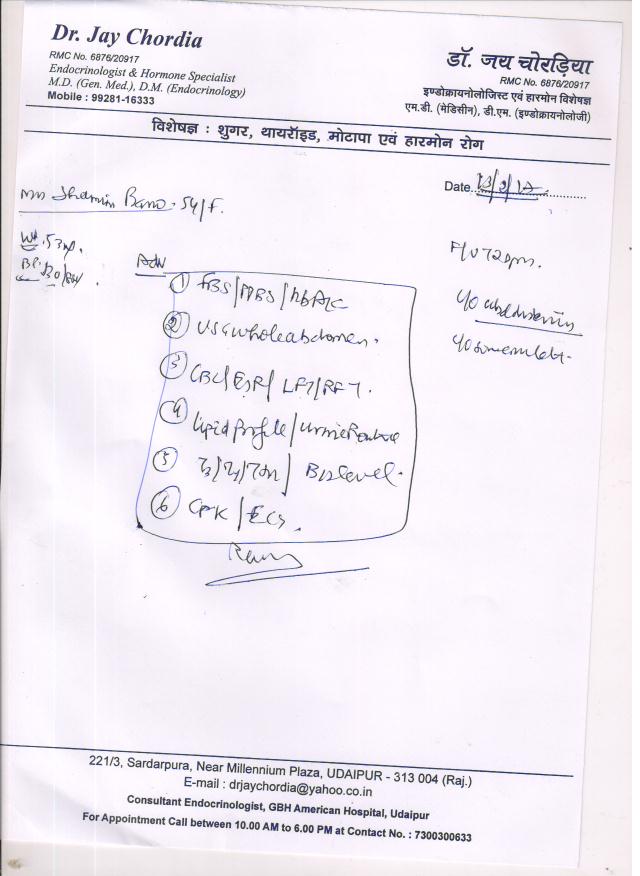 Dr. Jay Chordia
RMC No. 6876/20917
Endocrinologist & Hormone Specialist
M.D. (Gen. Med.), D.M. (Endocrinology)
Mobile : 99281-16333
डॉ. जय चोरड़िया
RMC No. 6876/20917
इण्डोक्रायनोलोजिस्ट एवं हारमोन विशेषज्ञ
एम.डी. (मेडिसीन), डी.एम. (इण्डोक्रायनोलोजी)
विशेषज्ञ : शुगर, थायरॉइड, मोटापा एवं हारमोन रोग
Date
Bano 54/F.
Wt. 53
BP.
Adv
① FBS/PPBS/HbA1c
② USG whole abdomen.
③ CBC/ESR/LFT/RFT.
④ Lipid profile/urine Routine
⑤ T3/T4/TSH/B12 level.
⑥ CPK/ECG.
221/3, Sardarpura, Near Millennium Plaza, UDAIPUR - 313 004 (Raj.)
E-mail : drjaychordia@yahoo.co.in
Consultant Endocrinologist, GBH American Hospital, Udaipur
For Appointment Call between 10.00 AM to 6.00 PM at Contact No. : 7300300633